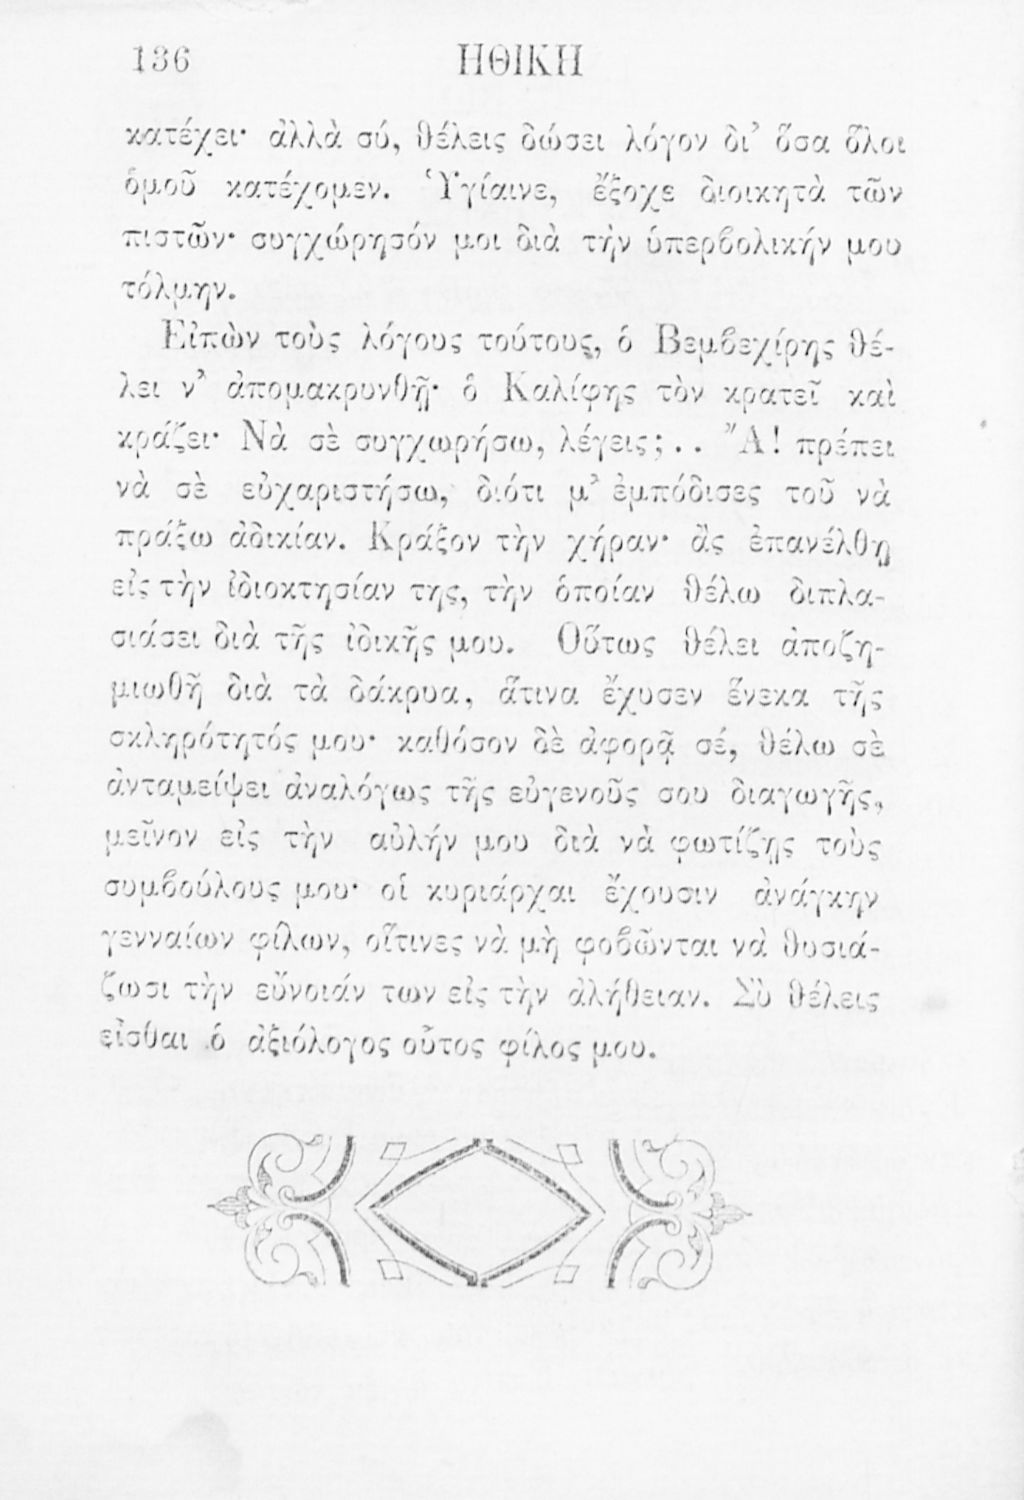 136 ΗΘΙΚΗ
κατέχει· ἀλλὰ σύ, θέλεις δώσει λόγον δι’ ὅσα ὅλοι
ὁμοῦ κατέχομεν. Ὑγίαινε, ἔξοχε διοικητὰ τῶν
πιστῶν· συγχώρησόν μοι διὰ τὴν ὑπερβολικήν μου
τόλμην.
Εἰπὼν τοὺς λόγους τούτους, ὁ Βεμβεχίρης θέ-
λει ν’ ἀπομακρυνθῇ· ὁ Καλίφης τὸν κρατεῖ καὶ
κράζει· Νὰ σὲ συγχωρήσω, λέγεις; . . Ἄ! πρέπει
νὰ σὲ εὐχαριστήσω, διότι μ’ ἐμπόδισες τοῦ νὰ
πράξω ἀδικίαν. Κράξον τὴν χήραν· ἂς ἐπανέλθῃ
εἰς τὴν ἰδιοκτησίαν της, τὴν ὁποίαν θέλω διπλα-
σιάσει διὰ τῆς ἰδικῆς μου. Οὕτως θέλει ἀποζη-
μιωθῆ διὰ τὰ δάκρυα, ἅτινα ἔχυσεν ἕνεκα τῆς
σκληρότητός μου· καθόσον δὲ ἀφορᾷ σέ, θέλω σὲ
ἀνταμείψει ἀναλόγως τῆς εὐγενοῦς σου διαγωγῆς,
μεῖνον εἰς τὴν αὐλήν μου διὰ νὰ φωτίζῃς τοὺς
συμβούλους μου· οἱ κυριάρχαι ἔχουσιν ἀνάγκην
γενναίων φίλων, οἵτινες νὰ μὴ φοβῶνται νὰ θυσιά-
ζωσι τὴν εὔνοιάν των εἰς τὴν ἀλήθειαν. Σὺ θέλεις
εἶσθαι ὁ ἀξιόλογος οὗτος φίλος μου.